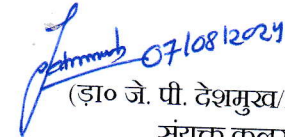 07/08/2024
(ड़ा० जे. पी. देशमुख/
संयुक्त